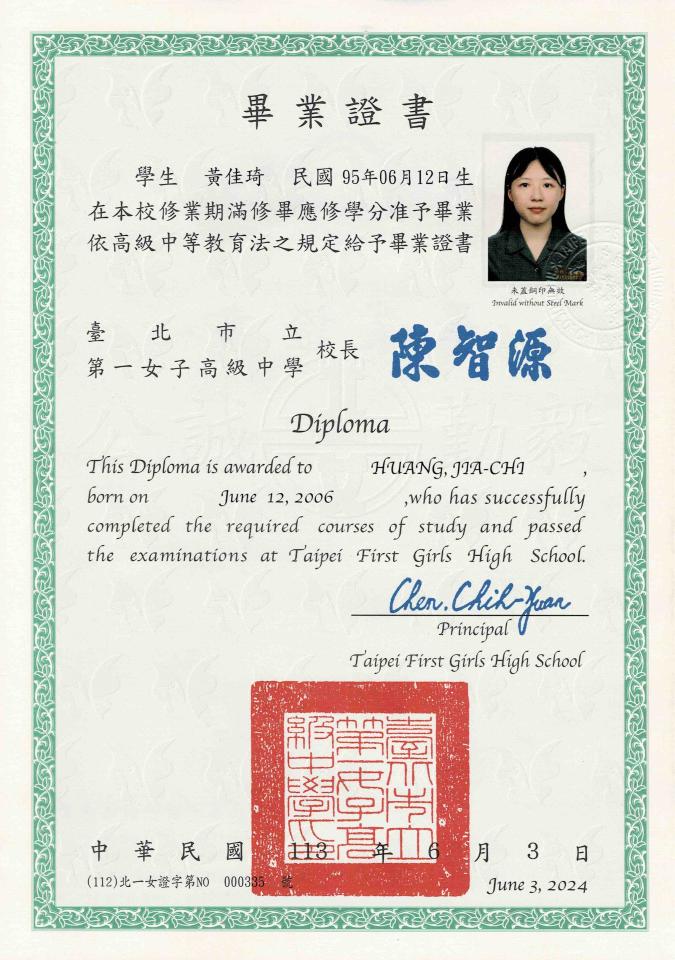 畢業證書
學生 黃佳琦 民國95年06月12日生
在本校修業期滿修畢應修學分准予畢業
依高級中等教育法之規定給予畢業證書
未蓋鋼印無效
Invalid without Steel Mark
臺北市立
第一女子高級中學 校長 陳智源
Diploma
This Diploma is awarded to HUANG, JIA-CHI ,
born on June 12, 2006 ,who has successfully
completed the required courses of study and passed
the examinations at Taipei First Girls High School.
Chen. Chih-Yuan
Principal
Taipei First Girls High School
臺北市立
第一女子高
級中學
中華民國 113 年 6 月 3 日
(112)北一女證字第NO 000335 號
June 3, 2024